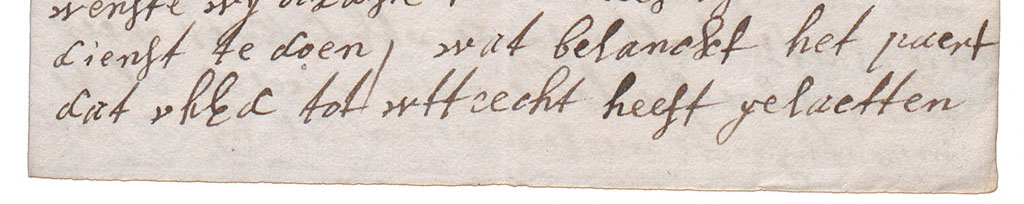 wenste wij
dienst te doen, wat belanckt het paert
dat vhEd tot wttrecht heeft gelaetten